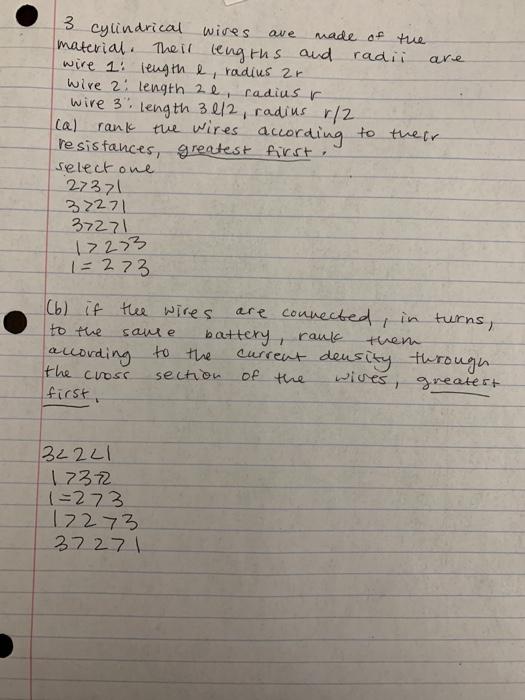 3 cylindrical wires are made of the
material. Their lengths and radii are
wire 1: length l, radius 2r
wire 2: length 2l, radius r
wire 3: length 3l/2, radius r/2
(a) rank the wires according to their
resistances, greatest first.
select one
2>3>1
3>2>1
3>2>1
1>2>3
1=2>3
(b) if the wires are connected, in turns,
to the same battery, rank them
according to the current density through
the cross section of the wires, greatest
first.
3<2<1
1>3>2
1=2>3
1>2>3
3>2>1